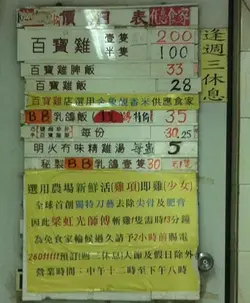 價目表
億食家
逢週三休息
百寶雞 壹隻 200
半隻 100
百寶雞脾飯 33
百寶雞飯 28
百寶雞店選用金象靚香米供應食家
BB乳鴿飯 特價 35
每份 30.25
明火冇味精雞湯 每盅 5
秘製BB乳鴿壹隻 30
選用農場新鮮活(雞項)即雞(少女)
全球首創獨特刀藝去除尖骨及肥膏
因此梁虹光師傅斬雞1隻需時13分鐘
為免食家輪候過久請予2小時前賜電
預訂(週三休息)人節及假日除外
營業時間：中午十二時至下午八時